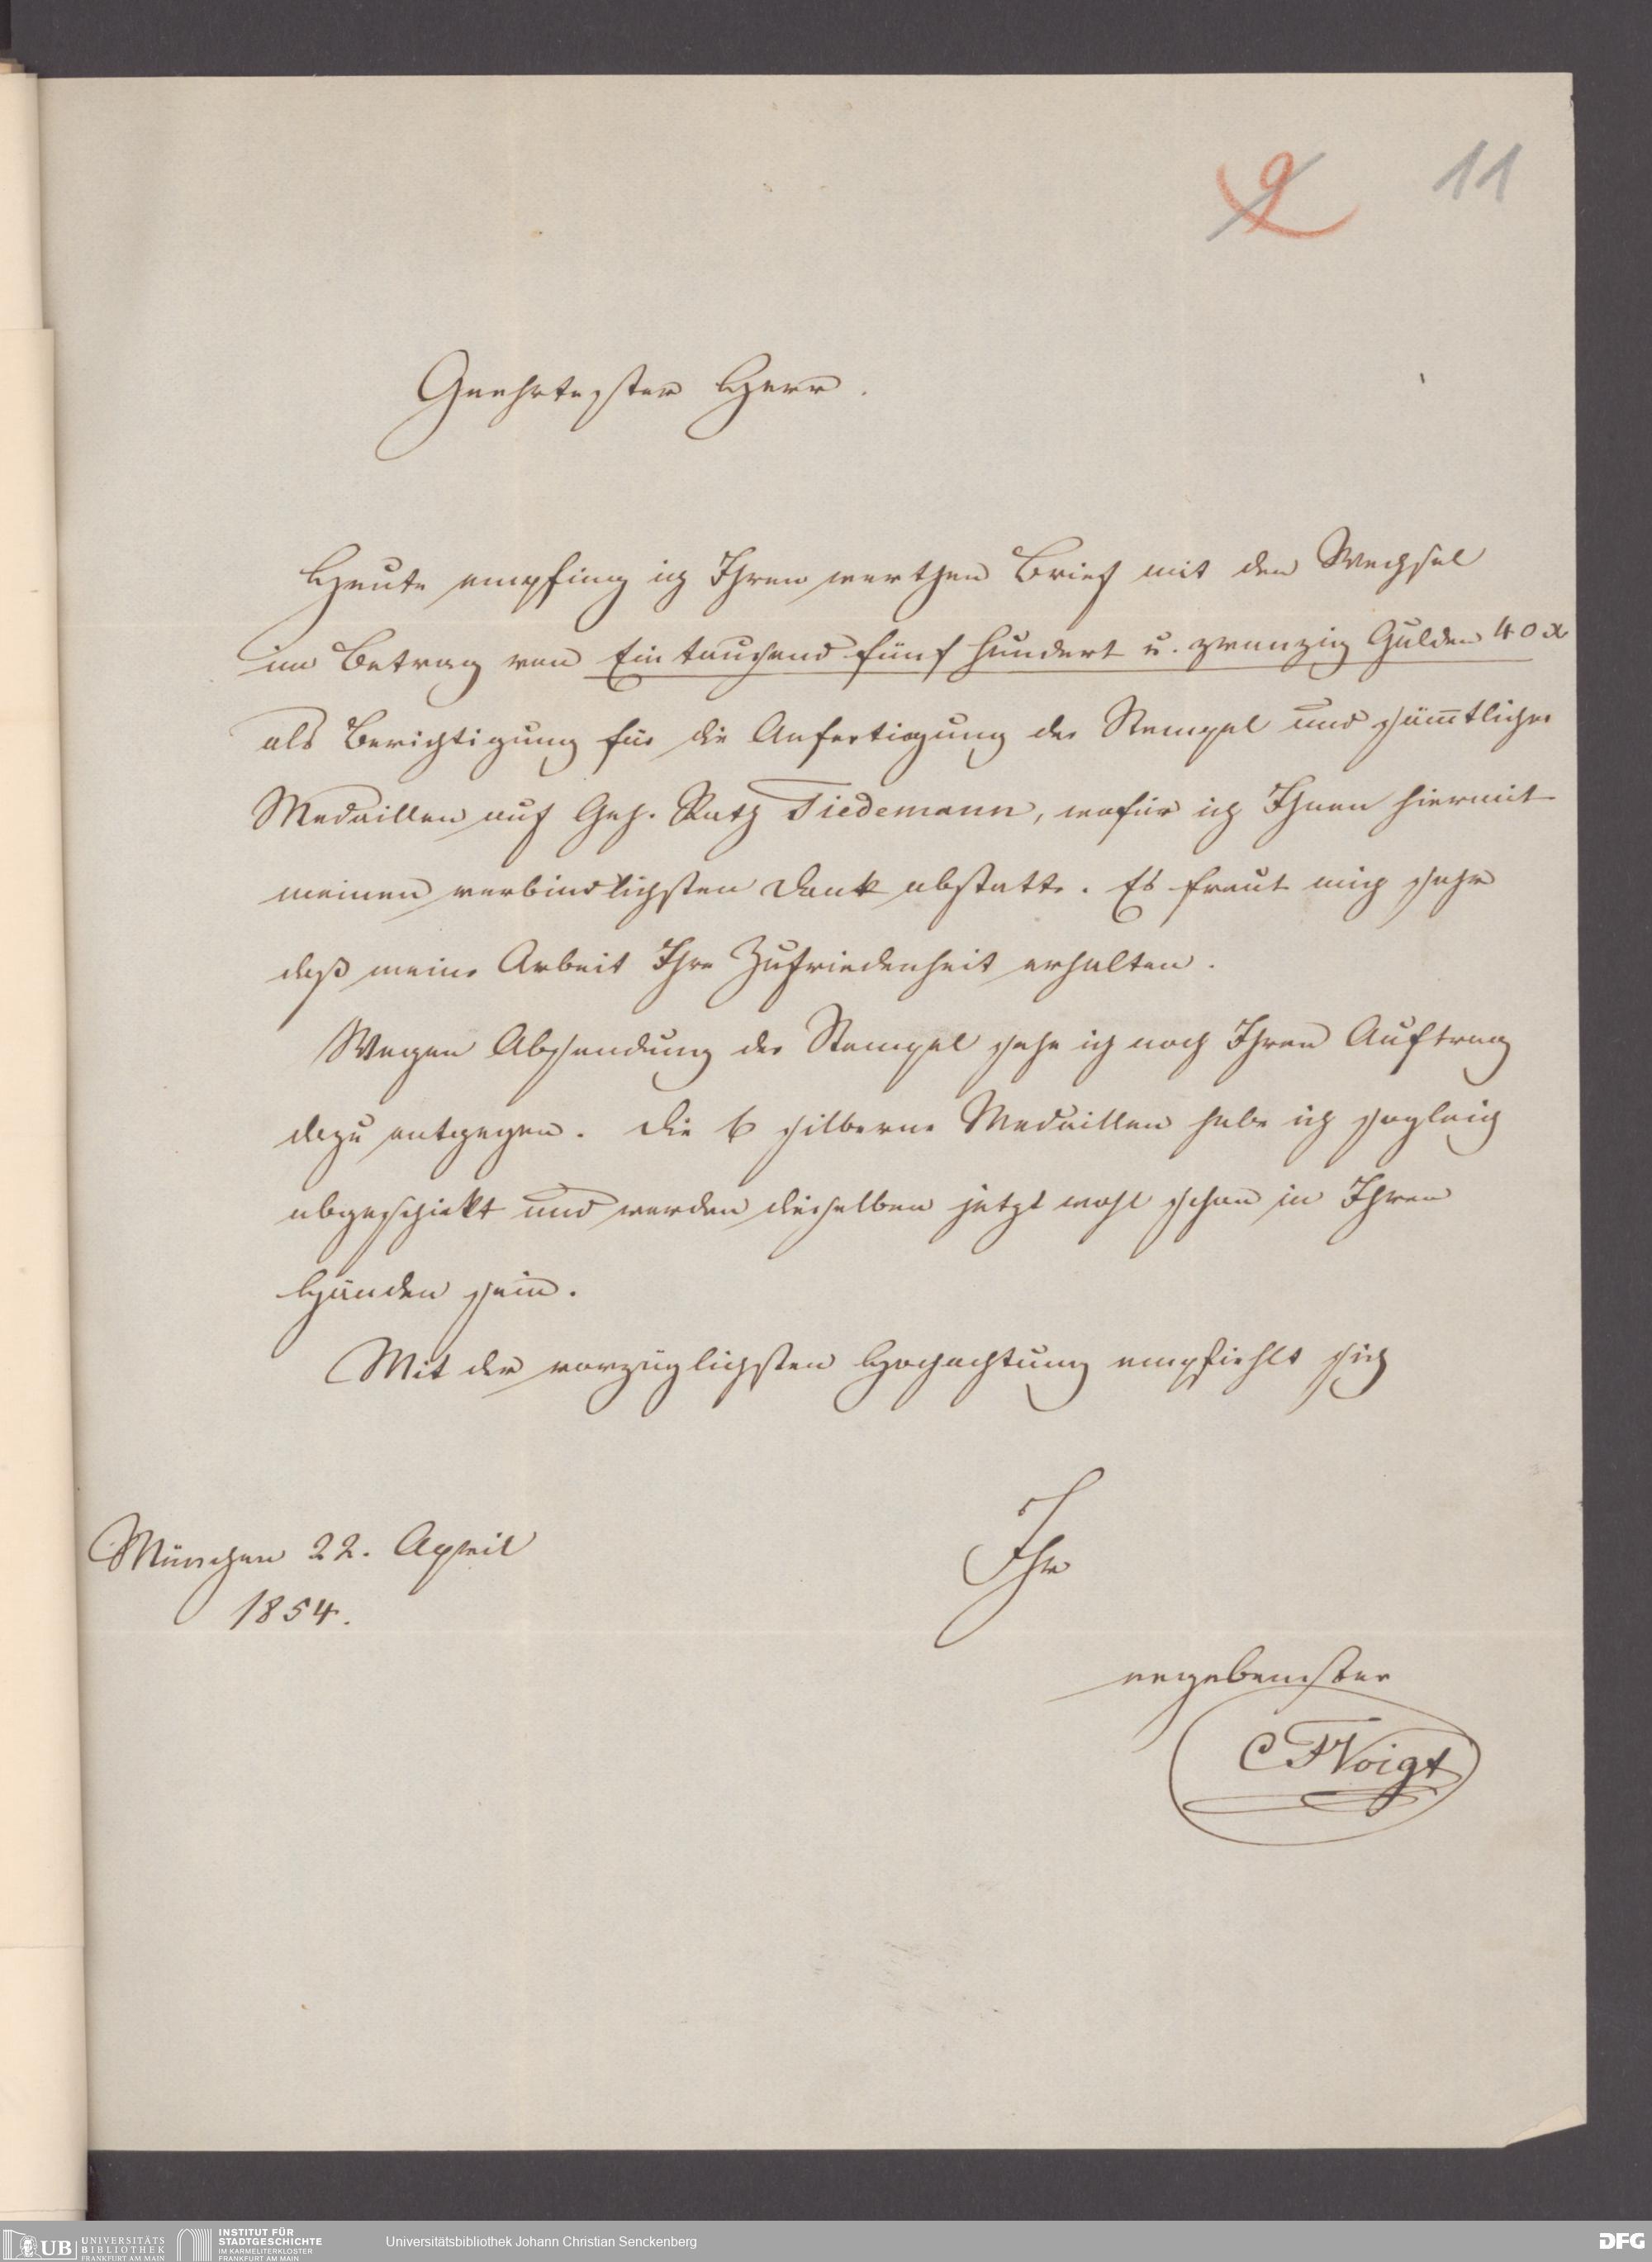 9 11
Geehrtester Herr.
Heute empfing ich Ihren werthen Brief mit den Wechsel
im Betrag von Ein tausend fünf hundert u. zwanzig Gulden 40 x
als Berichtigung für die Anfertigung der Stempel und sämtlicher
Medaillen auf Geh. Rath Tiedemann, wofür ich Ihnen hiermit
meinen verbindlichsten Dank abstatte. Es freut mich sehr
daß meine Arbeit Ihre Zufriedenheit erhalten.
Wegen Absendung der Stempel sehe ich noch Ihren Auftrag
dazu entgegen. Die 6 silberne Medaillen habe ich sogleich
abgeschickt und werden dieselben jetzt wohl schon in Ihren
Händen sein.
Mit der vorzüglichsten Hochachtung empfiehlt sich
München 22. April
1854.
Ihr
ergebenster
C F Voigt
UB UNIVERSITÄTS
BIBLIOTHEK
FRANKFURT AM MAIN
INSTITUT FÜR
STADTGESCHICHTE
IM KARMELITERKLOSTER
FRANKFURT AM MAIN
Universitätsbibliothek Johann Christian Senckenberg
DFG